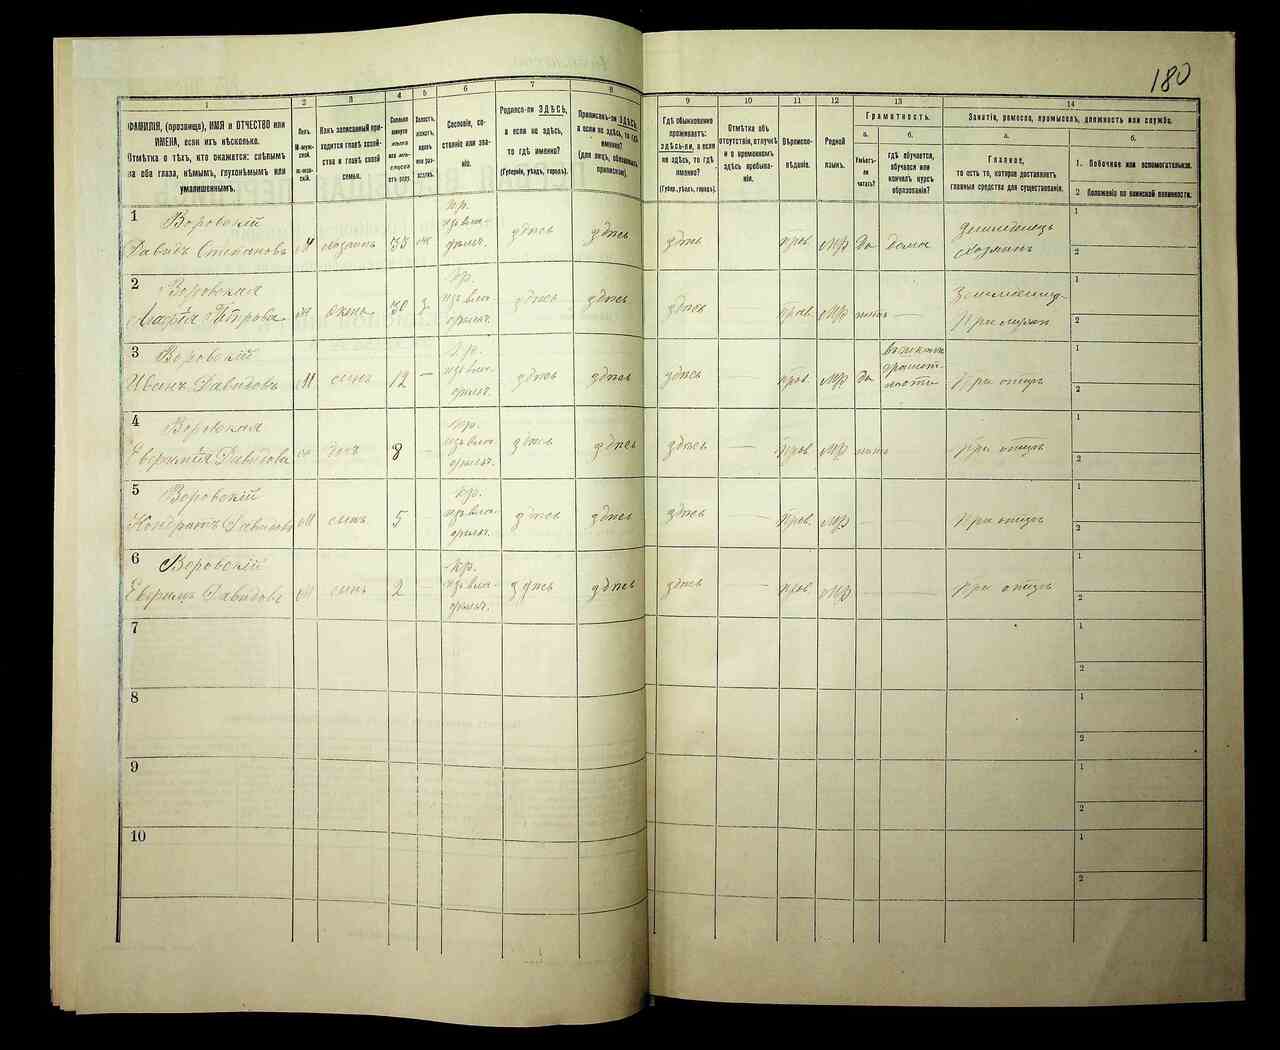 180
1
ФАМИЛІЯ, (прозвища), ИМЯ и ОТЧЕСТВО или
ИМЕНА, если ихъ нѣсколько.
Отмѣтка о тѣхъ, кто окажется: слѣпымъ
на оба глаза, нѣмымъ, глухонѣмымъ или
умалишеннымъ.
2
Полъ.
М-муж-
ской.
Ж-жен-
скій.
3
Какъ записанный при-
ходится главѣ хозяй-
ства и главѣ своей
семьи.
4
Сколько
минуло
лѣтъ
или мѣ-
сяцевъ
отъ роду.
5
Холостъ,
женатъ,
вдовъ
или раз-
веденъ.
6
Сословіе, со-
стояніе или зва-
ніе.
7
Родился-ли ЗДѢСЬ,
а если не здѣсь,
то гдѣ именно?
(Губернія, уѣздъ, городъ).
8
Приписанъ-ли ЗДѢСЬ,
а если не здѣсь, то гдѣ
именно?
(для лицъ, обязанныхъ
припискою).
9
Гдѣ обыкновенно
проживаетъ:
здѣсь-ли, а если
не здѣсь, то гдѣ
именно?
(Губер., уѣздъ, городъ).
10
Отмѣтка объ
отсутствіи, отлучкѣ
и о временномъ
здѣсь пребыва-
ніи.
11
Вѣроиспо-
вѣданіе.
12
Родной
языкъ.
13
Грамотность.
а.
Умѣетъ-
ли
читать?
б.
гдѣ обучается,
обучался или
кончилъ курсъ
образованія?
14
Занятіе, ремесло, промыселъ, должность или служба.
а.
Главное,
то есть то, которое доставляетъ
главныя средства для существованія.
б.
1. Побочное или вспомогательное.
2 Положеніе по воинской повинности.
1
Воровскій
Давидъ Степановъ
М хозяинъ 35 ж
кр.
изъ вла-
дѣльч.
здѣсь здѣсь здѣсь — прав. МР да дома
Землѣделецъ
хозяинъ
1
2
2
Воровская
Петрова
ж жена 30 з
кр.
изъ вла-
дѣльч.
здѣсь здѣсь здѣсь — прав. МР нѣтъ —
При мужѣ
1
2
3
Воровскій
Иванъ Давидовъ
М сынъ 12 —
кр.
изъ вла-
дѣльч.
здѣсь здѣсь здѣсь — прав. МР да
въ школѣ
грамот-
ности
При отцѣ
1
2
4
Воровская
Евфимія Давидова
ж дочь 8 —
кр.
изъ вла-
дѣльч.
здѣсь здѣсь здѣсь — прав. МР нѣтъ —
При отцѣ
1
2
5
Воровскій
Кондратъ Давидовъ
М сынъ 5 —
кр.
изъ вла-
дѣльч.
здѣсь здѣсь здѣсь — прав. МР —
При отцѣ
1
2
6
Воровскій
Ефимъ Давидовъ
М сынъ 2 —
кр.
изъ вла-
дѣльч.
здѣсь здѣсь здѣсь — прав. МР — —
При отцѣ
1
2
7
1
2
8
1
2
9
1
2
10
1
2